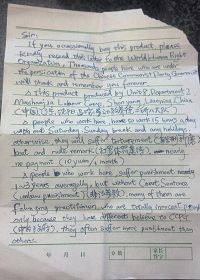 Sir:
If you occasionally buy this product, please
kindly resend this letter to the World Human Right
Organization. Thousands people here who are under
the persecution of the Chinese Communist Party Government
will thank and remember you forever.
This product produced by Unit 8, Department 2
Masanjia Labour Camp, Shenyang, Liaoning China
(中国,辽宁,沈阳,
people who work here, have to work 15 hours a day
with out Saturday, Sunday break and any holidays,
otherwise, they will suffer torturement
beat and rude remark nearly
no payment (10 yuan/month)
People who work here, suffer punishment
1~3 years averagely, but without Court Sentence
(unlaw punishment) many of them are
Falun gong practitioner, who are totally innocent people
only because they have different believe to CCPG
they often suffer more punishment than
others.
年 月 日